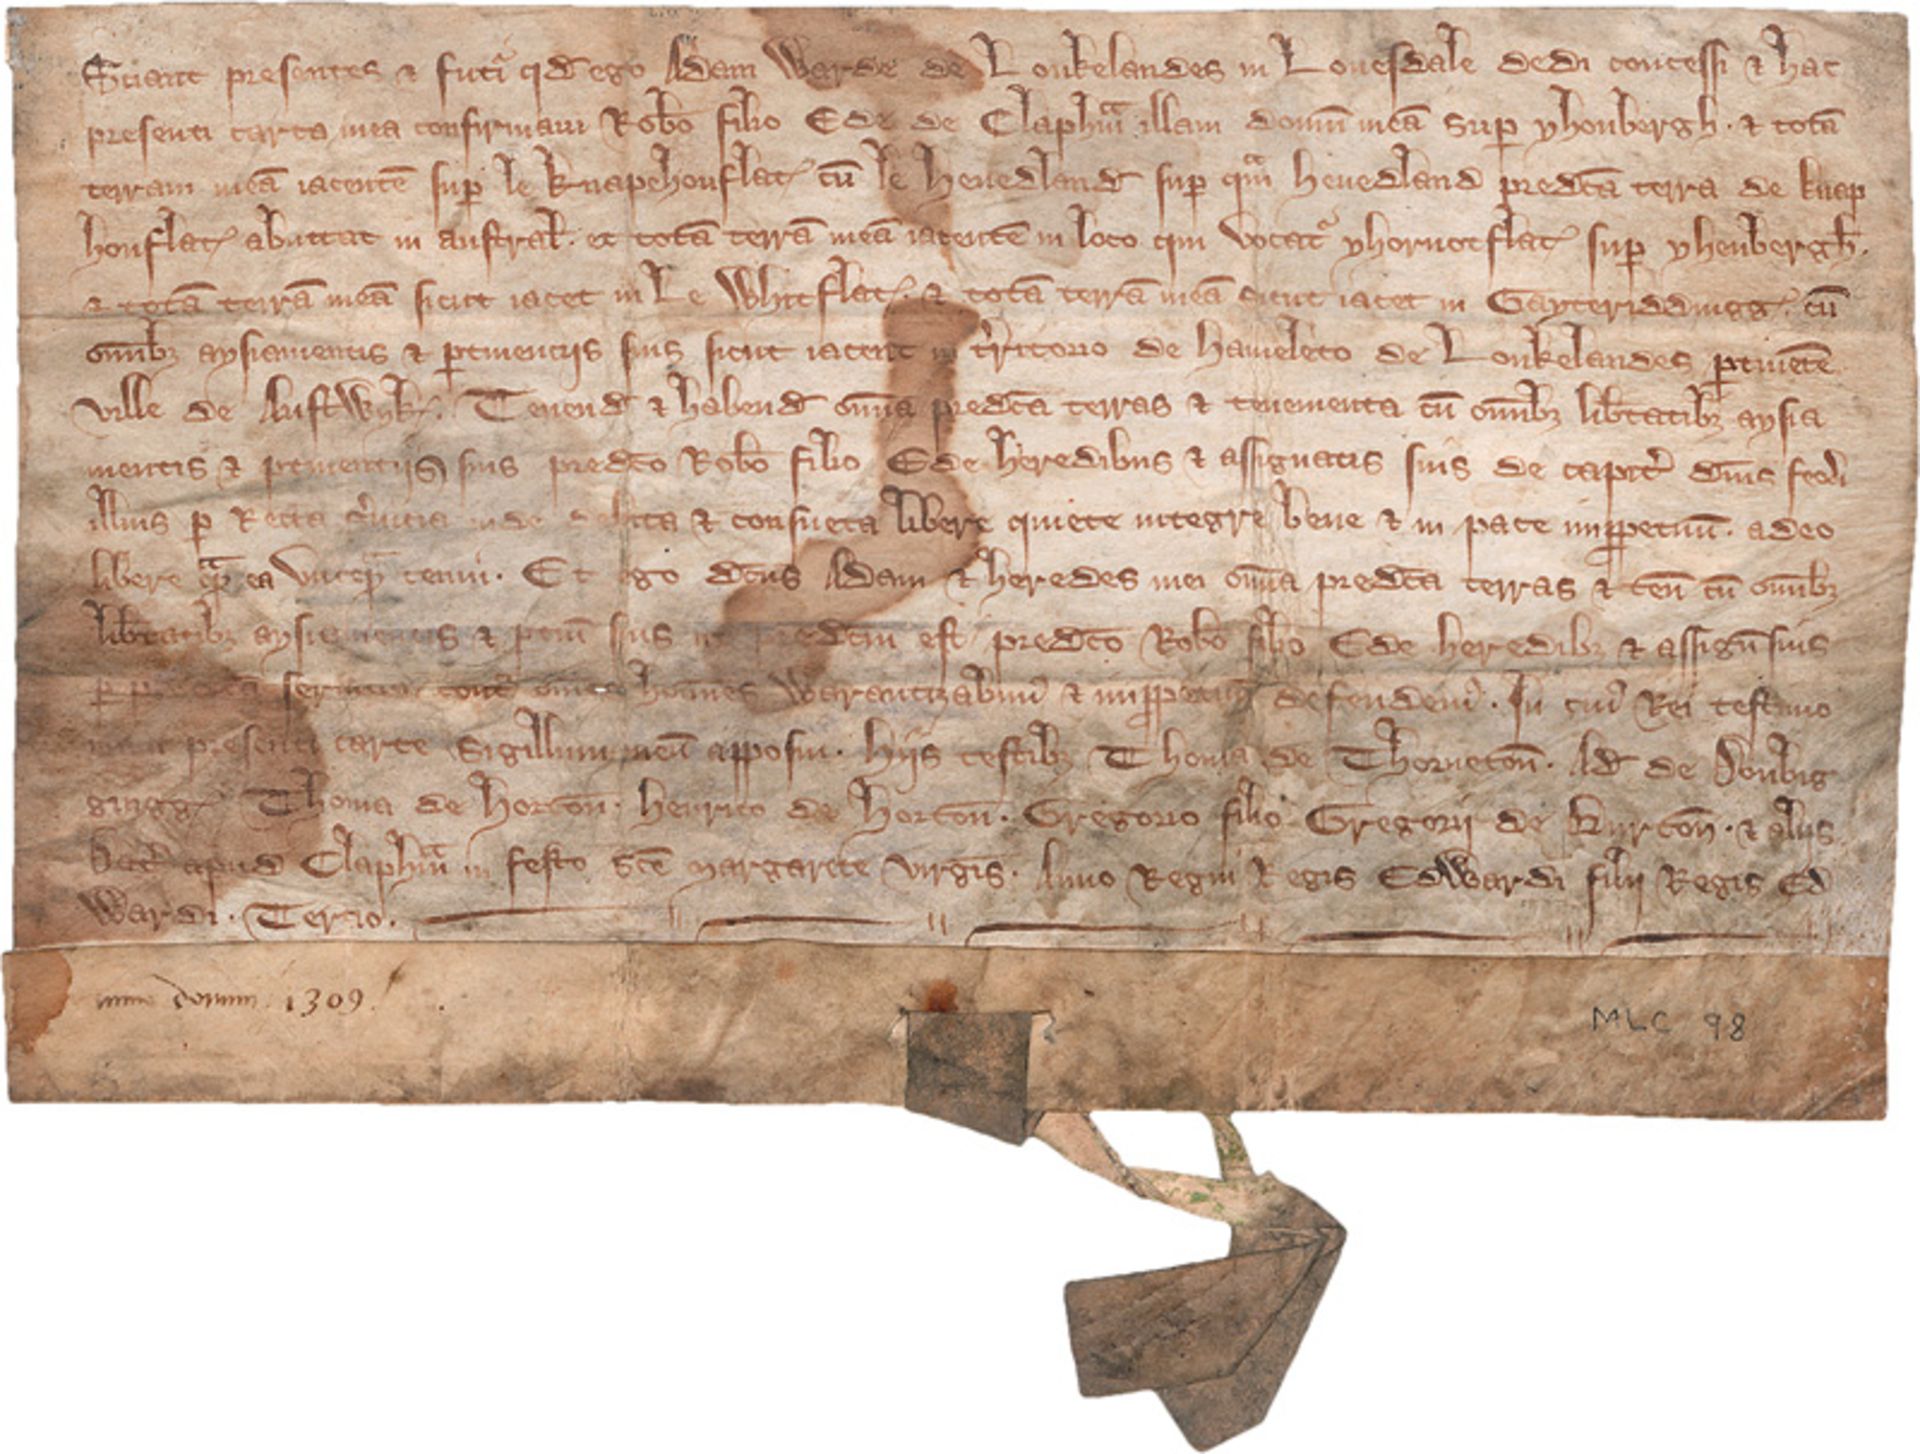 Sciant presentes & futi' qd' ego Adam Warde de Loukelandes in Lonesdale dedi concessi & hac
presenti carta mea confirmaui Rob'o filio Ede de Claph'm illam domu' meā sup' yhonbergh. & totā
terram meā iacentē sup' le knapehouflat' cū le heuedland' sup' qm heuedland predc'a terra de knap
houflat' abuttat in austral'. et totā terrā meā iacentē in loco qui vocat' yhornotflat' sup' yhenbergh'.
& totā terrā meā sicut iacet in Le Whitflat'. & totā terrā meā sicut iacet in Gayteriddingg'. cū
omib' aysiamentis & p'tinenciis suis sicut iacent in t'ritorio de hameleto de Loukelandes p'tinētē
ville de Austwyk'. Tenend' & habend' om'ia predc'a terras & tenementa cū omib' lib'tatib' aysia
mentis & p'tinentijs suis predc'o Rob'o filio Ede heredibus & assignatis suis de capit' d'nis feodi
illius p' Recta s'uicia inde debita & consueta libere quiete integre bene & in pace inp'petuū. adeo
libere q'm ea vnq'm tenui. Et ego dc'us Adam & heredes mei om'ia predc'a terras & ten' cū omib'
lib'tatib' aysiamentis & p'tin' suis ut predc'm est predc'o Rob'o filio Ede heredib' & assign' suis
p' predc'a seruicia cont' omnes homines Warantizabim' & inp'petuū defendem'. In cui' Rei testimo
nium presenti carte Sigillum meū apposui. hijs testib' Thoma de Thornetoń. Ad' de Doubig
gingg' Thoma de hortoń. henrico de hortoń. Gregorio filio Gregorij de Burtoń. & alijs
Dat' apud Claph'm in festo sc'e Margarete virgis. Anno Regni Regis Edwardi filij Regis Ed
wardi. Tercio.
anno domini. 1309.
MLC 98